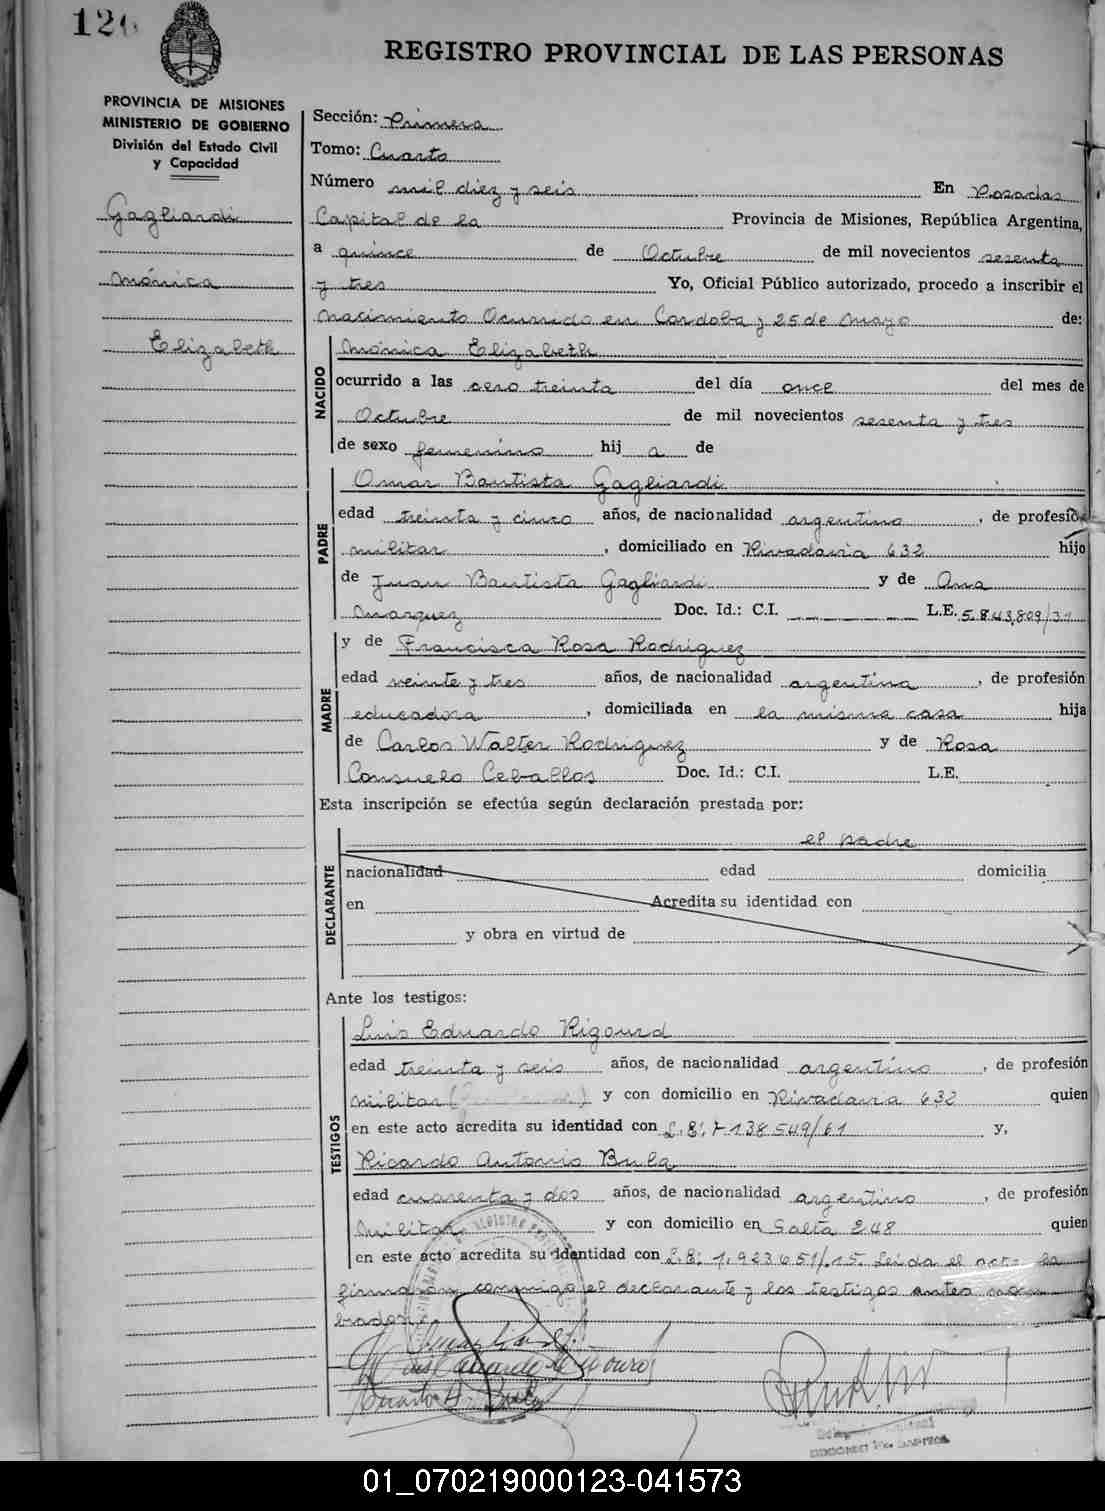 126
REGISTRO PROVINCIAL DE LAS PERSONAS
PROVINCIA DE MISIONES
MINISTERIO DE GOBIERNO
División del Estado Civil
y Capacidad
Gagliardi
Mónica
Elizabeth
Sección: Primera
Tomo: Cuarto
Número mil diez y seis En Posadas
Capital de la Provincia de Misiones, República Argentina,
a quince de Octubre de mil novecientos sesenta
y tres Yo, Oficial Público autorizado, procedo a inscribir el
nacimiento Ocurrido en Cordoba y 25 de Mayo de:
NACIDO
Mónica Elizabeth
ocurrido a las cero treinta del día once del mes de
Octubre de mil novecientos sesenta y tres
de sexo femenino hij a de
PADRE
Omar Bautista Gagliardi
edad treinta y cinco años, de nacionalidad argentino, de profesión
militar, domiciliado en Rivadavia 632 hijo
de Juan Bautista Gagliardi y de Ana
Marquez Doc. Id.: C.I. L.E. 5.843,809/31
MADRE
y de Francisca Rosa Rodriguez
edad veinte y tres años, de nacionalidad argentina, de profesión
educadora, domiciliada en la misma casa hija
de Carlos Walter Rodriguez y de Rosa
Consuelo Ceballos Doc. Id.: C.I. L.E.
Esta inscripción se efectúa según declaración prestada por:
DECLARANTE
el padre
nacionalidad edad domicilia
en Acredita su identidad con
y obra en virtud de
Ante los testigos:
TESTIGOS
Luis Eduardo Rigourd
edad treinta y seis años, de nacionalidad argentino, de profesión
militar y con domicilio en Rivadavia 632 quien
en este acto acredita su identidad con L.E. 138.549/61 y,
Ricardo Antonio Bula
edad cuarenta y dos años, de nacionalidad argentino, de profesión
Militar y con domicilio en Salta 248 quien
en este acto acredita su identidad con L.E. 1.923651/.15. Leída el acta la
firmaron conmigo el declarante y los testigos antes nom
brados.
01_070219000123-041573